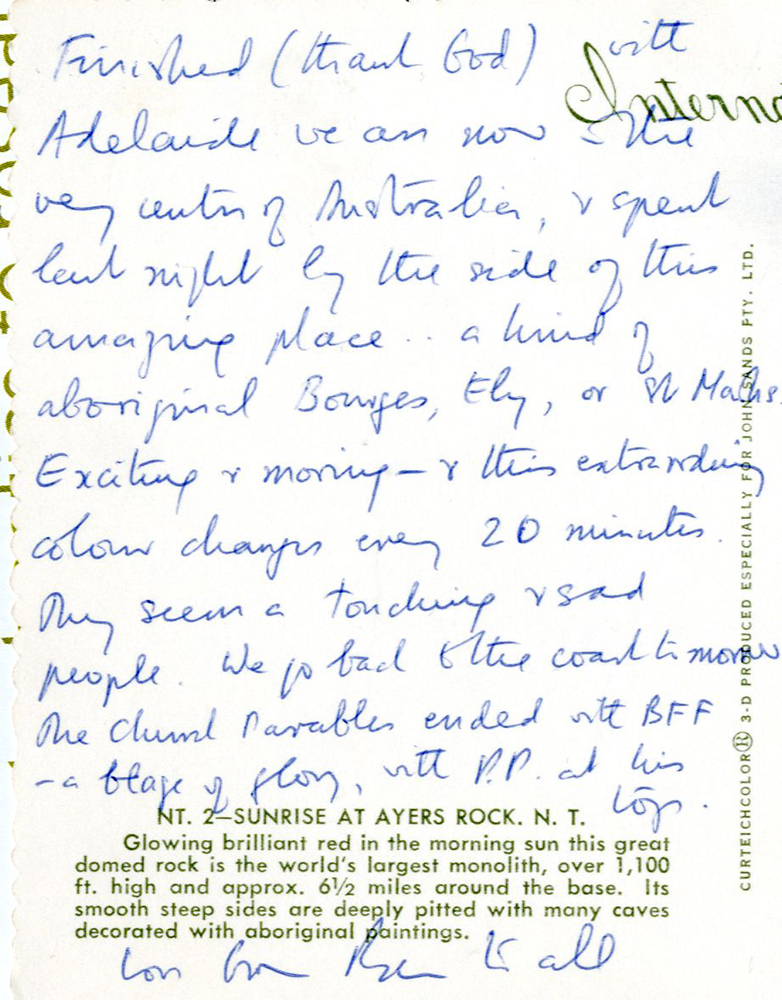 Finished (thank God) with
Interna
Adelaide we are now in the
very centre of Australia, & spent
last night by the side of this
amazing place .. a kind of
aboriginal Bourges, Ely, or St Marks.
Exciting & moving — & this extraordinary
colour changes every 20 minutes.
They seem a touching & sad
people. We go back to the coast tomorrow
The Church Parables ended with BFF
– a blaze of glory, with P.P. at his
top.
NT. 2—SUNRISE AT AYERS ROCK. N. T.
Glowing brilliant red in the morning sun this great
domed rock is the world's largest monolith, over 1,100
ft. high and approx. 6½ miles around the base. Its
smooth steep sides are deeply pitted with many caves
decorated with aboriginal paintings.
love from to all
CURTEICHCOLOR® 3-D PRODUCED ESPECIALLY FOR JOHN SANDS PTY. LTD.